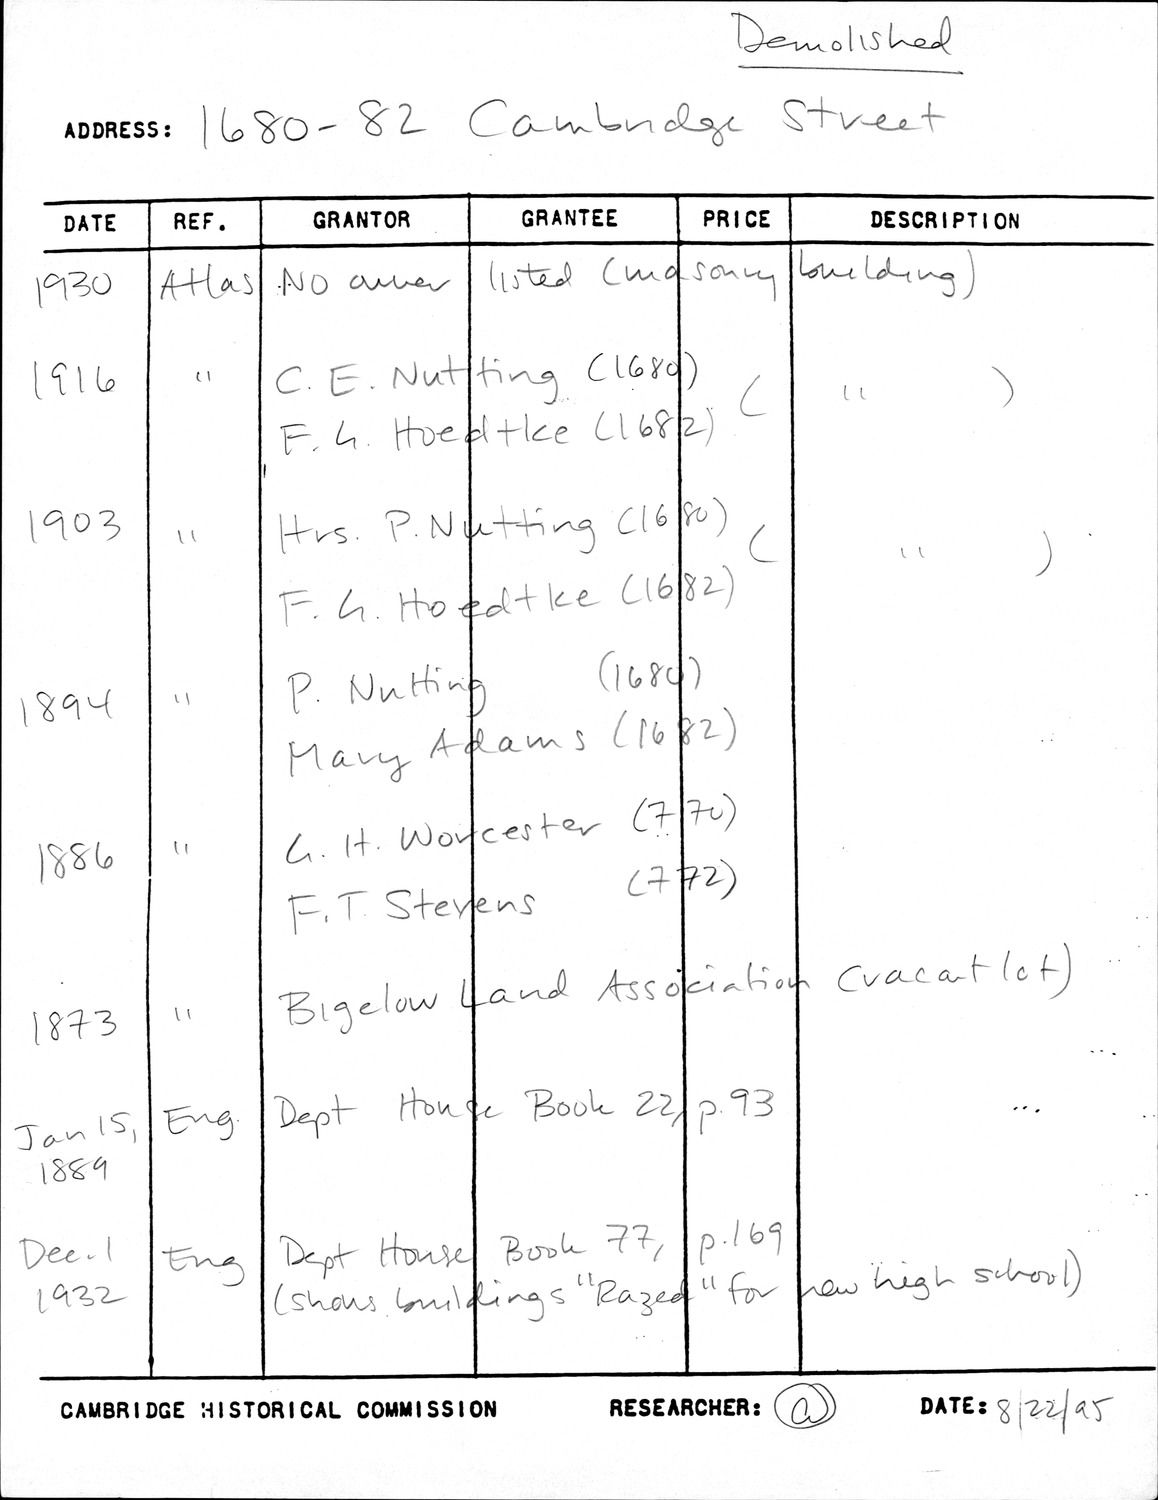 Demolished
ADDRESS: 1680-82 Cambridge Street
DATE REF. GRANTOR GRANTEE PRICE DESCRIPTION
1930 Atlas No owner listed (masonry building)
1916 " C. E. Nutting (1680) ( " )
F. G. Hoedtke (1682)
1903 " Hrs. P. Nutting (1680) ( " )
F. G. Hoedtke (1682)
1894 " P. Nutting (1680)
Mary Adams (1682)
1886 " G. H. Worcester (770)
F. T. Stevens (772)
1873 " Bigelow Land Association (vacant lot)
Jan 15, Eng. Dept House Book 22, p. 93
1889
Dec. 1 Eng Dept House Book 77, p. 169
1932 (shows buildings "Razed" for new high school)
CAMBRIDGE HISTORICAL COMMISSION RESEARCHER: DATE: 8/22/95